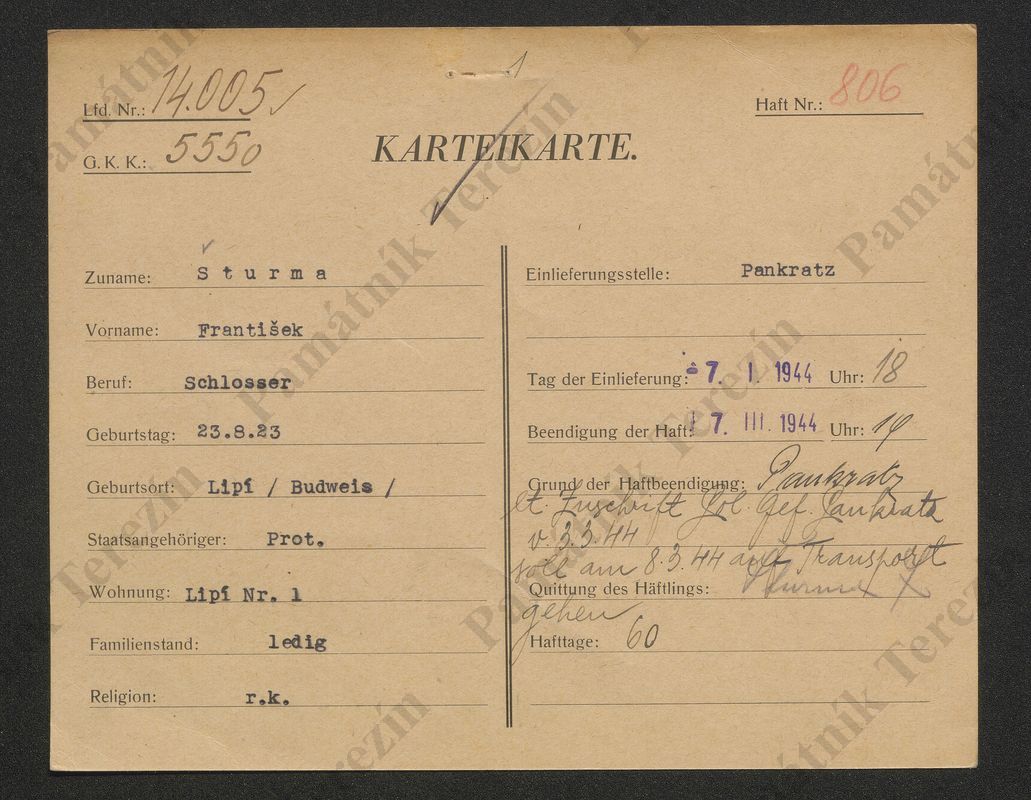 Lfd. Nr.: 14.005
G. K. K.: 5550
Haft Nr.: 806
KARTEIKARTE.
Zuname: Šturma
Vorname: František
Beruf: Schlosser
Geburtstag: 23.8.23
Geburtsort: Lipí / Budweis /
Staatsangehöriger: Prot.
Wohnung: Lipí Nr. 1
Familienstand: ledig
Religion: r.k.
Einlieferungsstelle: Pankratz
Tag der Einlieferung: 7. I. 1944 Uhr: 18
Beendigung der Haft: 7. III. 1944 Uhr: 14
Grund der Haftbeendigung: Pankratz
lt. Zuschrift Pol. Gef. Pankratz
v. 3.3.44
soll am 8.3.44 auf Transport
Quittung des Häftlings: Šturma X
gehen
Hafttage: 60
Památník Terezín
Památník Terezín
Památník Terezín
Památník Terezín